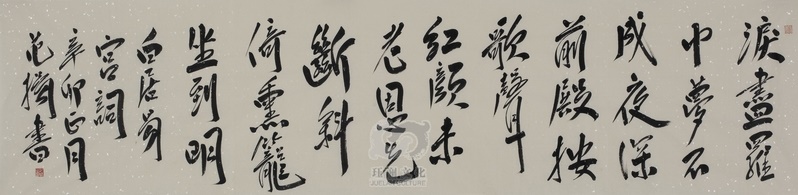 淚盡羅
巾夢不
成夜深
前殿按
歌聲
紅顏未
老恩先
斷斜
倚熏籠
坐到明
白居易
宮詞
辛卯正月
范書